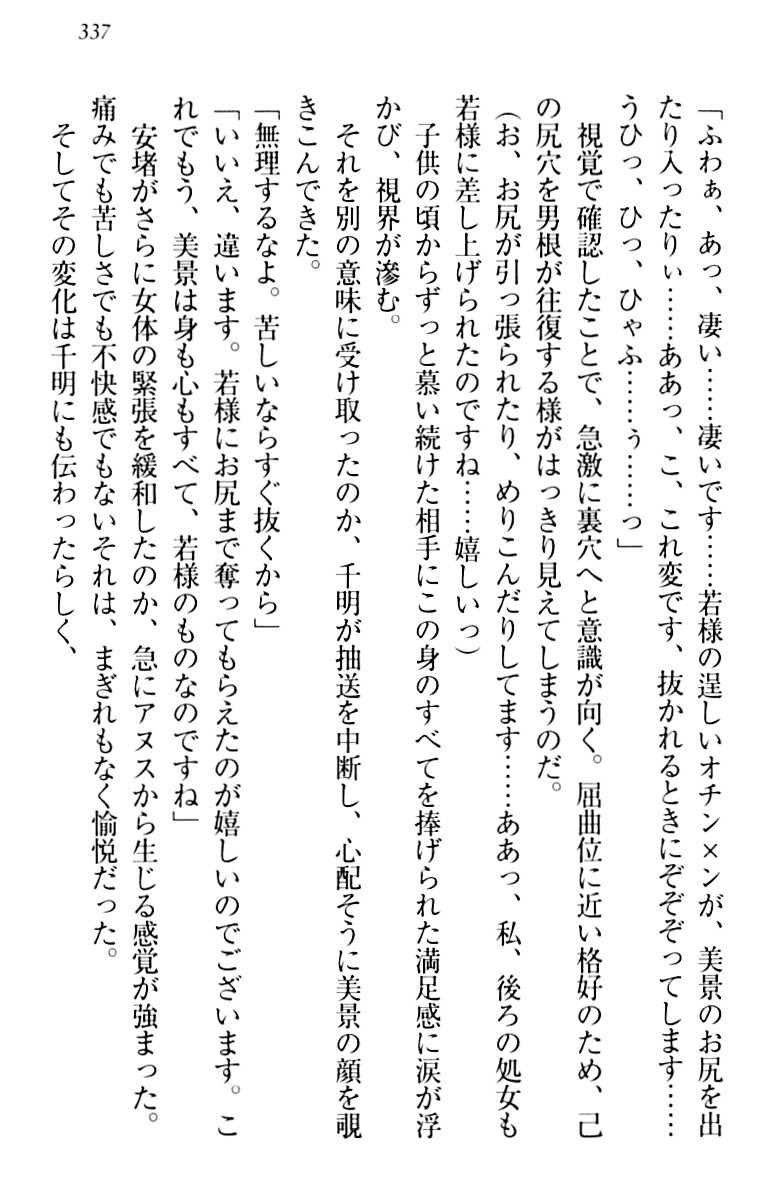 337
「ふわぁ、あっ、凄い……凄いです……若様の逞しいオチン×ンが、美景のお尻を出
たり入ったりぃ……ああっ、こ、これ変です、抜かれるときにぞぞぞってします……
うひっ、ひっ、ひゃふ……ぅ……っ」
視覚で確認したことで、急激に裏穴へと意識が向く。屈曲位に近い格好のため、己
の尻穴を男根が往復する様がはっきり見えてしまうのだ。
（お、お尻が引っ張られたり、めりこんだりしてます……ああっ、私、後ろの処女も
若様に差し上げられたのですね……嬉しいっ）
子供の頃からずっと慕い続けた相手にこの身のすべてを捧げられた満足感に涙が浮
かび、視界が滲む。
それを別の意味に受け取ったのか、千明が抽送を中断し、心配そうに美景の顔を覗
きこんできた。
「無理するなよ。苦しいならすぐ抜くから」
「いいえ、違います。若様にお尻まで奪ってもらえたのが嬉しいのでございます。こ
れでもう、美景は身も心もすべて、若様のものなのですね」
安堵がさらに女体の緊張を緩和したのか、急にアヌスから生じる感覚が強まった。
痛みでも苦しさでも不快感でもないそれは、まぎれもなく愉悦だった。
そしてその変化は千明にも伝わったらしく、